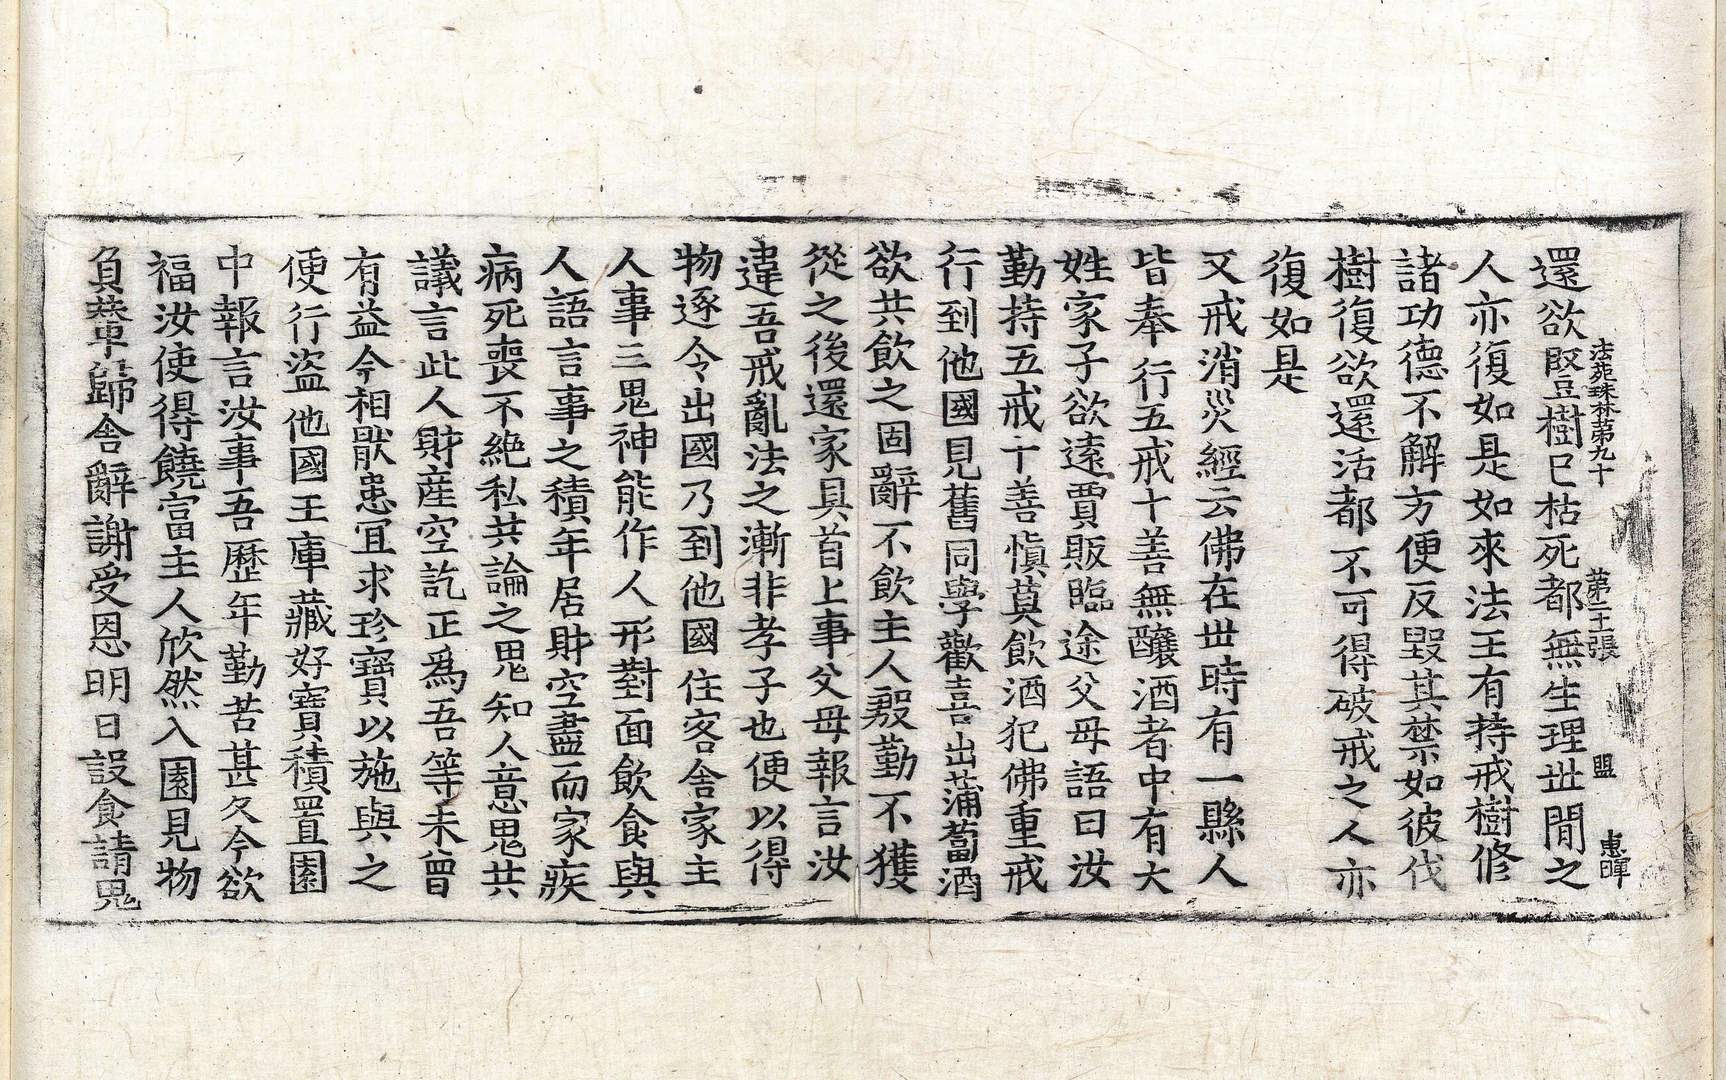 法苑珠林第九十 第二十張 盟 惠暉
還欲竪樹已枯死都無生理世間之
人亦復如是如來法王有持戒樹修
諸功德不解方便反毀其禁如彼伐
樹復欲還活都不可得破戒之人亦
復如是
又戒消災經云佛在世時有一縣人
皆奉行五戒十善無釀酒者中有大
姓家子欲遠賈販臨途父母語曰汝
勤持五戒十善愼莫飲酒犯佛重戒
行到他國見舊同學歡喜出蒲萄酒
欲共飲之固辭不飲主人慇勤不獲
從之後還家具首上事父母報言汝
違吾戒亂法之漸非孝子也便以得
物逐令出國乃到他國住客舍家主
人事三鬼神能作人形對面飲食與
人語言事之積年居財空盡而家疾
病死喪不絶私共論之鬼知人意鬼共
議言此人財産空訖正爲吾等未曾
有益今相猒患宜求珍寶以施與之
便行盜他國王庫藏好寶積置園
中報言汝事吾歷年勤苦甚久今欲
福汝使得饒富主人欣然入園見物
負輦歸舍辭謝受恩明日設食請鬼